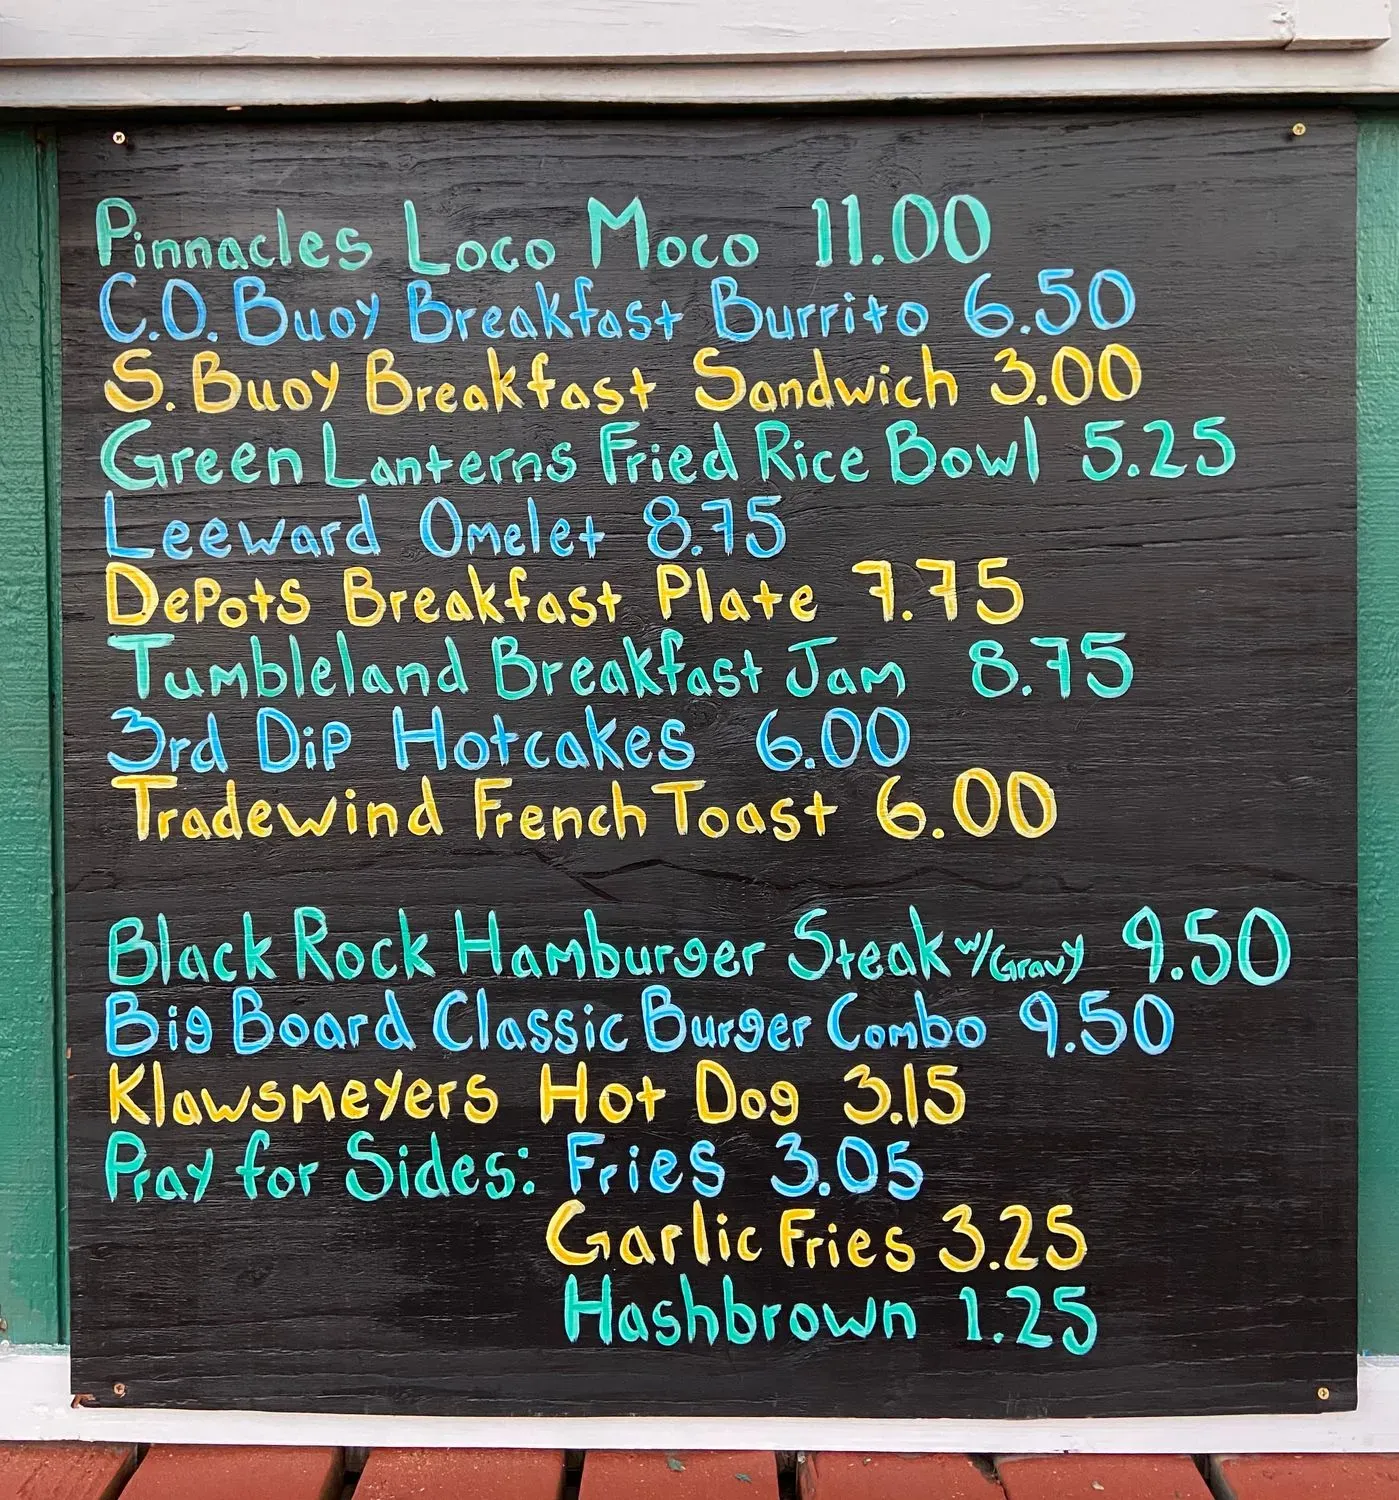 Pinnacles Loco Moco 11.00
C.O. Buoy Breakfast Burrito 6.50
S. Buoy Breakfast Sandwich 3.00
Green Lanterns Fried Rice Bowl 5.25
Leeward Omelet 8.75
DePots Breakfast Plate 7.75
Tumbleland Breakfast Jam 8.75
3rd Dip Hotcakes 6.00
Tradewind French Toast 6.00
Black Rock Hamburger Steak w/Gravy 9.50
Big Board Classic Burger Combo 9.50
Klawsmeyers Hot Dog 3.15
Pray for Sides: Fries 3.05
Garlic Fries 3.25
Hashbrown 1.25